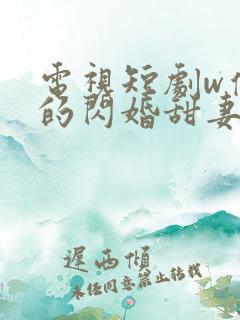 電視短劇w
的閃婚甜妻
遲西傾
未經同意禁止轉載